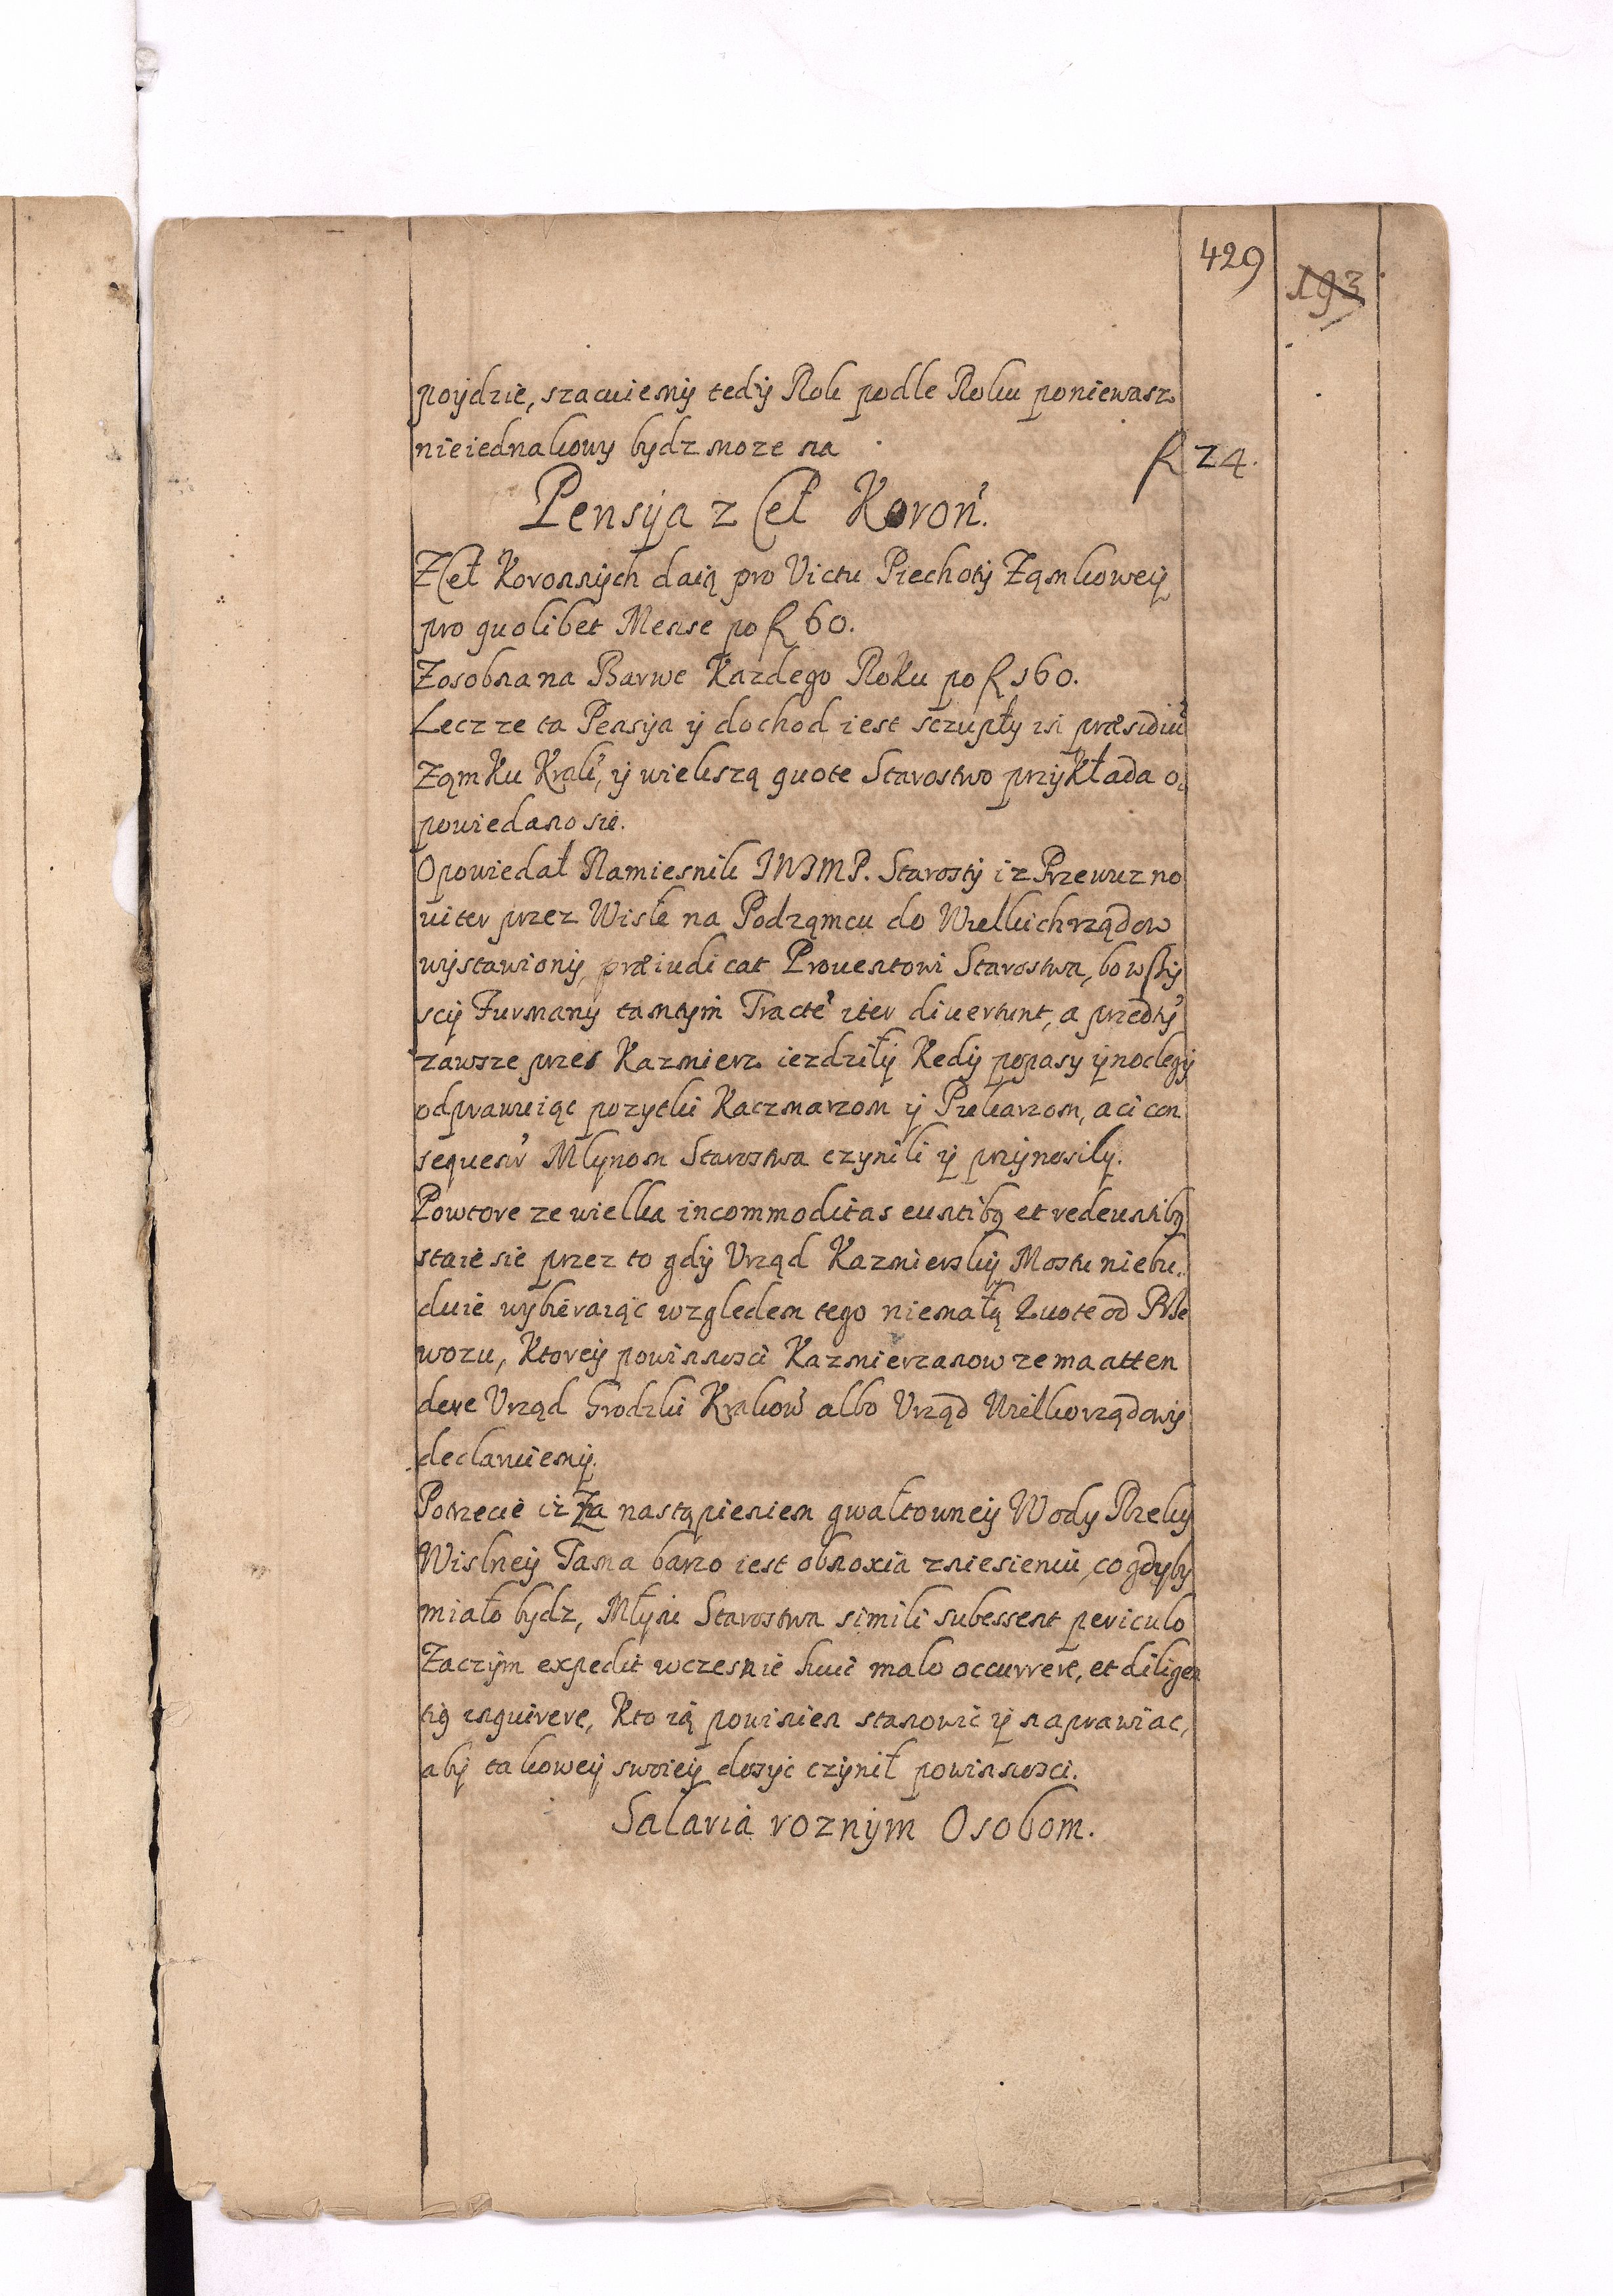 429
193
poydzie, szacuiemy tedy Rok podle Roku poniewasz
nieiednakowy bydz moze na f 24.
Pensyja z Ceł Koron.
Z Ceł Koronnych daią pro Victu Piechoty Ząmkowey
pro quolibet Mense po f 60.
Zosobna na Barwe Kazdego Roku po f 160.
Lecz ze ta Pensyja y dochod iest sczupły in præsidiu
Ząmku Krak, y wiekszą quote Starostwo przykłada o,
powiedano sie.
Opowiedał Namiesnik JWJMP. Starosty iz Przewuz no
uiter przez Wisłe na Podząmcu do Wielkich rządow
wystawiony, præiudicat Prouentowi Starostwa, bo wszy
scy Furmany tamtym Tracte iter diuertunt, a przedty
zawsze przes Kazmierz iezdziły Kedy popasy y noclegy
odprawuiąc pozytki Kaczmarzom y Piekarzom, a ci con
sequent Młynom Starostwa czynili y przynosiły.
Powtore ze wielka incommoditas euntibq et redeuntibq
staie sie przez to gdy Urząd Kazmierzky Mostu niebu,
duie wybieraiąc wzgledem tego niemałą Quote od Prze
wozu, Ktorey powinnosci Kazmierzanow ze ma atten
dere Urząd Grodzki Krakow albo Urząd Wielkorządowy
declaruiemy.
Potrzecie iz za nastąpieniem gwałtowney Wody Rzeky
Wislney Tama barzo iest obnoxia zniesieniu, co gdyby
miało bydz, Młyni Starostwa simili subessent periculo
Zaczym expedit wczesnie huic malo occurrere, et diligen
tiq inquirere, Kto ią powinien stanowic y naprawiac,
aby takowey swoiey dosyc czynił powinnosci.
Salaria roznym Osobom.